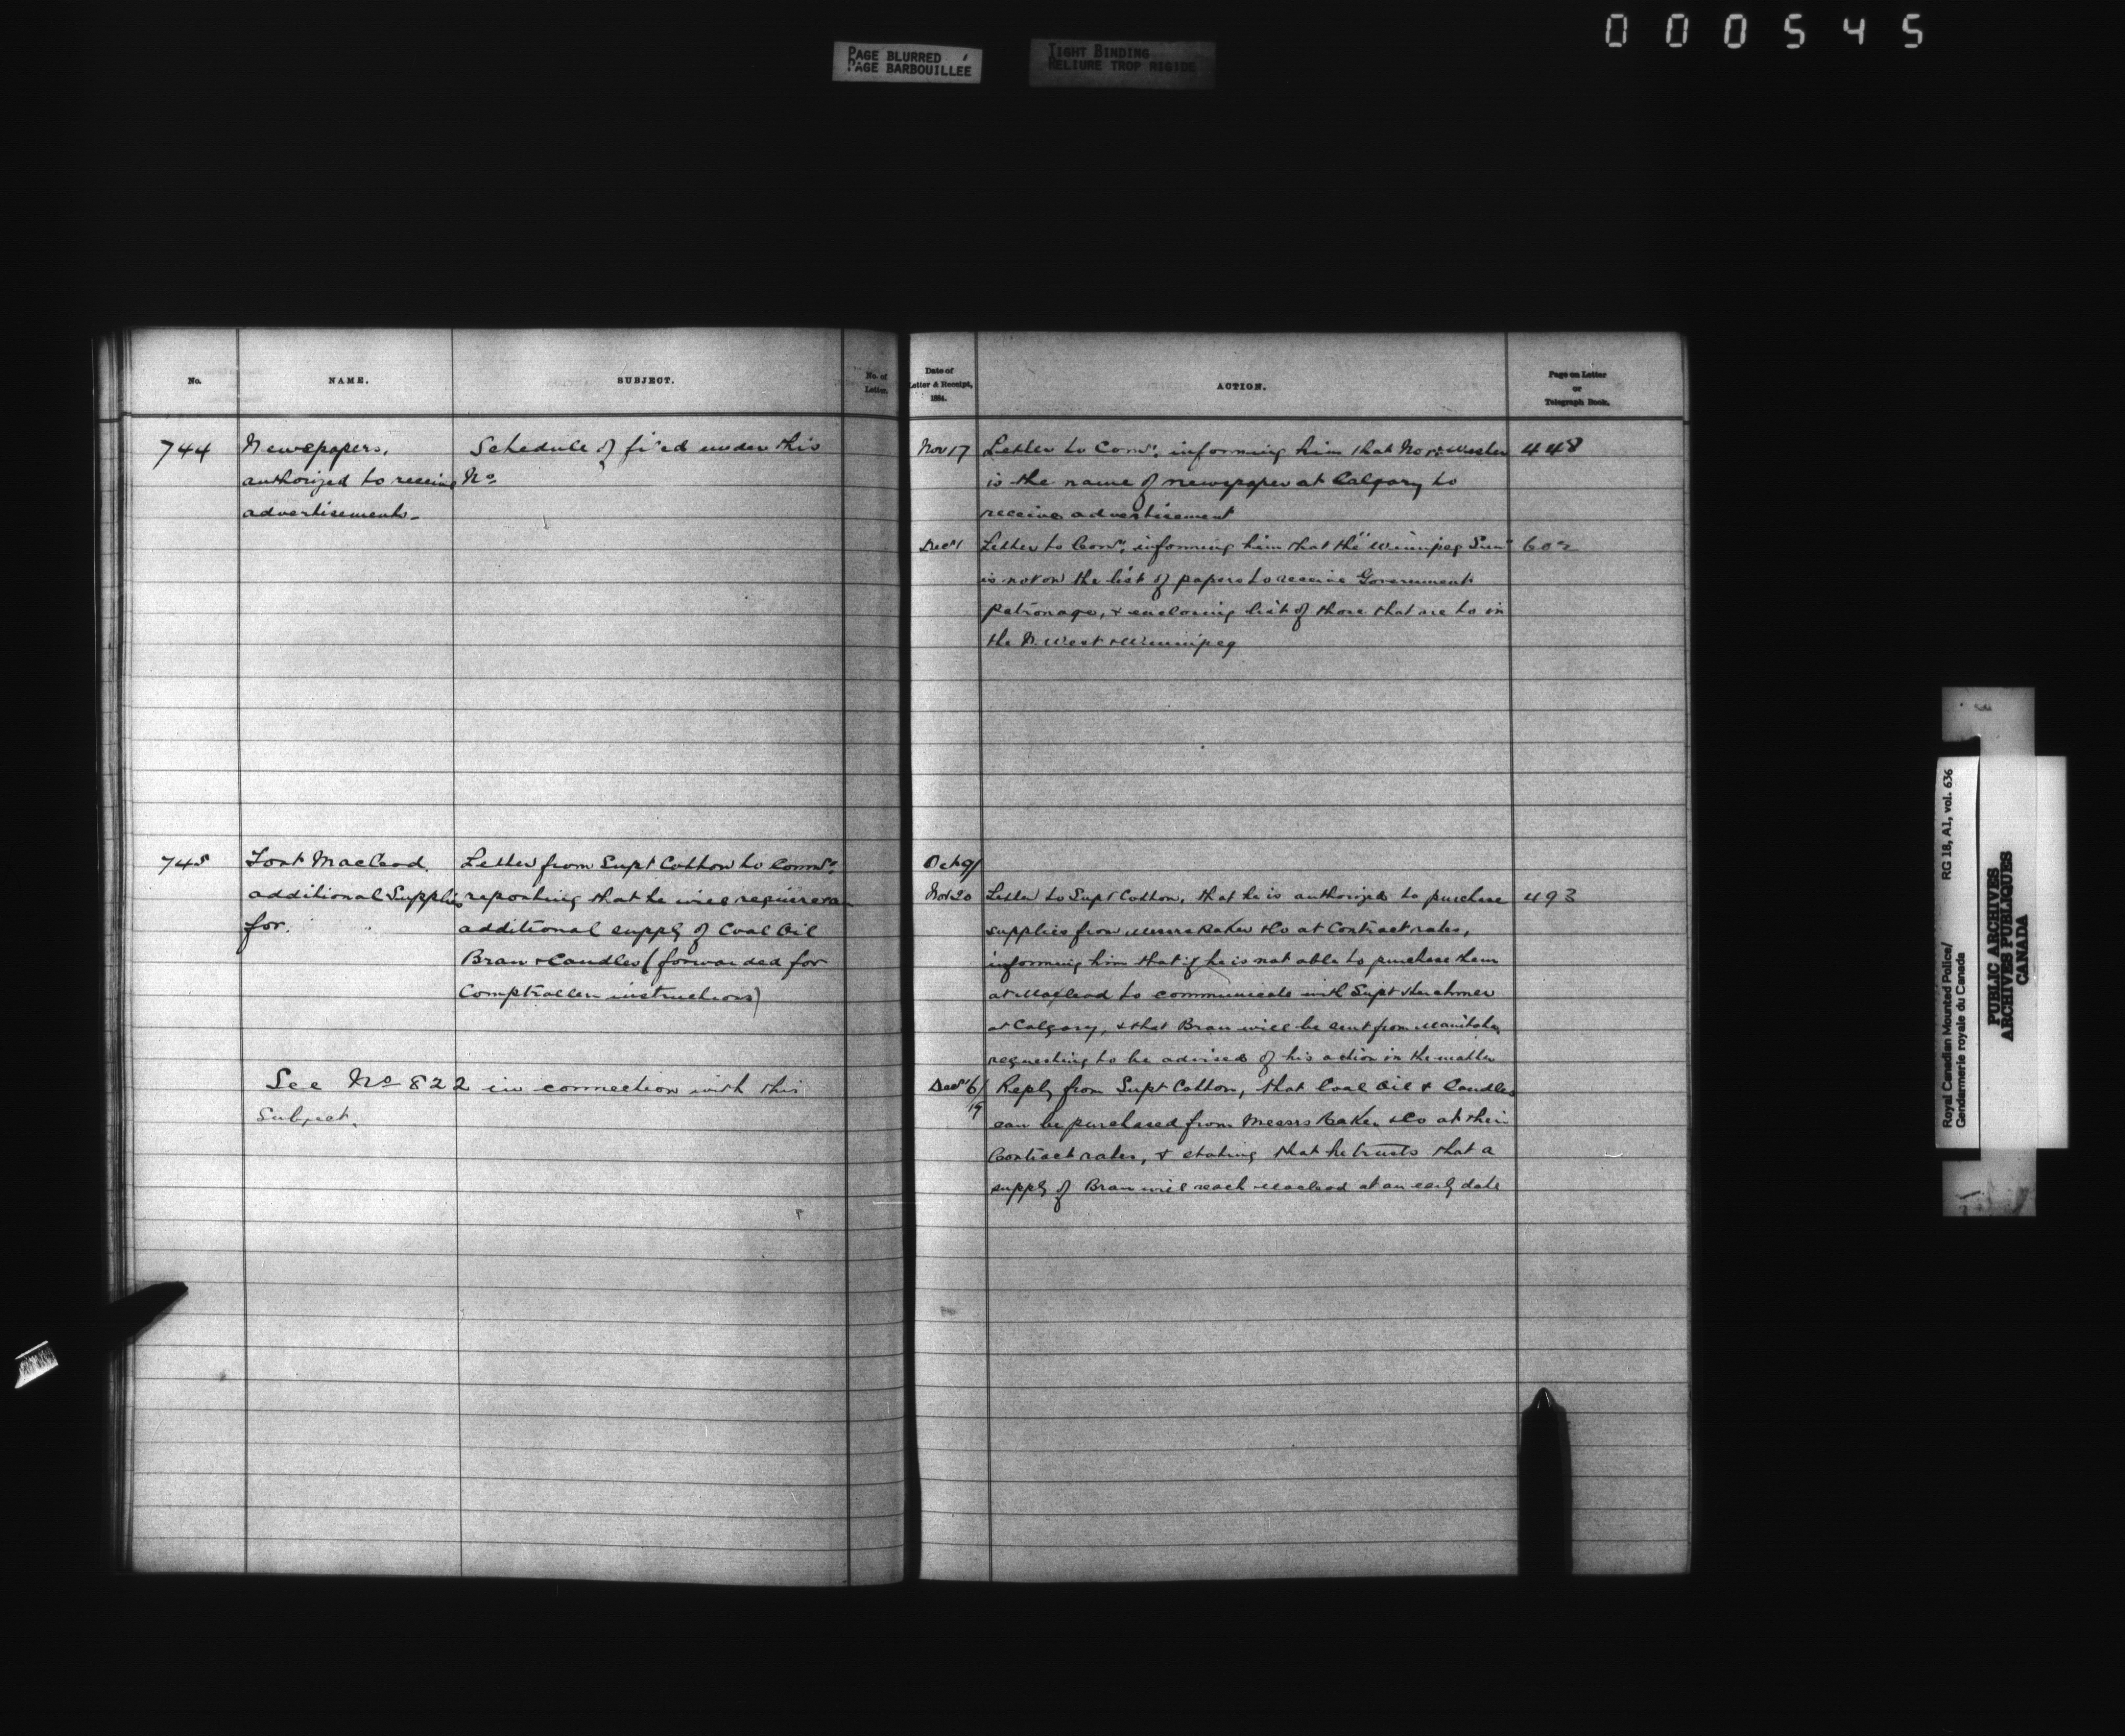 000545
PAGE BLURRED
PAGE BARBOUILLEE
TIGHT BINDING
RELIURE TROP RIGIDE
No.
NAME.
SUBJECT.
No. of
Letter.
744
Newspapers,
authorized to receive
advertisements.
Schedule of filed under this
No
745
Fort Macleod.
additional Supplies
for.
Letter from Supt Cotton to Comr.
reporting that he will require an
additional supply of Coal Oil
Bran & Candles (forwarded for
Comptroller instructions)
See No 822 in connection with this
Subject.
Date of
Letter & Receipt,
1884.
ACTION.
Page on Letter
or
Telegraph Book.
Nov 17
Letter to Comr. informing him that Nor: Wester
448
is the name of newspaper at Calgary to
receive advertisement
Decr 1
Letter to Comr. informing him that the "Winnipeg Sun"
602
is not on the list of papers to receive Government
patronage, & enclosing list of those that are to in
the N. West & Winnipeg
Oct 9/
Nov 20
Letter to Supt Cotton, that he is authorized to purchase
493
supplies from Messrs Baker & Co at Contract rates,
informing him that if he is not able to purchase them
at Macleod to communicate with Supt Herchmer
at Calgary, & that Bran will be sent from Manitoba,
requesting to be advised of his action in the matter
Decr 6/
19
Reply from Supt Cotton, that Coal Oil & Candles
can be purchased from Messrs Baker & Co at their
Contract rates, & stating that he trusts that a
supply of Bran will reach Macleod at an early date
Royal Canadian Mounted Police/
Gendarmerie royale du Canada
RG 18, A1, vol. 636
PUBLIC ARCHIVES
ARCHIVES PUBLIQUES
CANADA